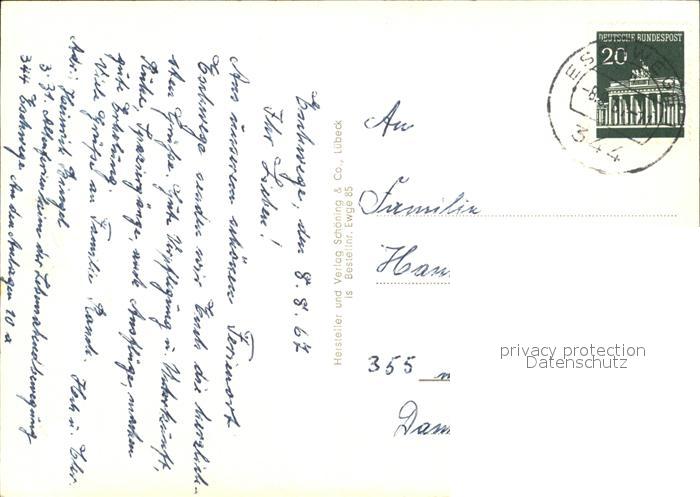 Eschwege, den 8.8.67
Ihr Lieben!
Aus unserem schönen Ferienort
Eschwege senden wir Euch die herzlich-
sten Grüße. Gute Verpflegung u. Unterkunft,
Ruhe, Spaziergänge, auch Ausflüge, machen
gute Erholung.
Viele Grüße an Familie
Adr.: Heinrich
z. Zt. Altenferienheim der
344 Eschwege An den Anlagen 10 a
Hersteller und Verlag Schöning & Co., Lübeck
is Bestellnr. Ewge 85
DEUTSCHE BUNDESPOST
20
ESCHWEGE
344
An
Familie
Han
355
Dam
privacy protection
Datenschutz